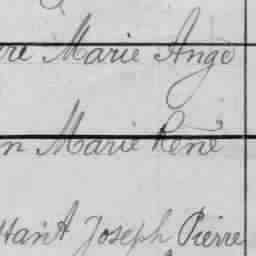 re Marie Ange
n Marie René
stant Joseph Pierre